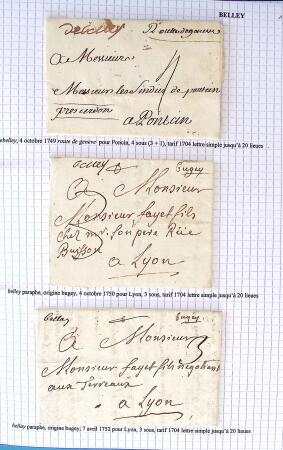 BELLEY
debelley Routte de geneve
a Messieurs
Messieurs les sindics de poncin
a Poncin
belley, 4 octobre 1749 route de genève pour Poncin, 4 sous (3 + 1), tarif 1704 lettre simple jusqu'à 20 lieues
bugey
a Monsieur
Monsieur fayet fils
chez mr. son pere Rüe
Buisson
a Lyon
belley paraphe, origine bugey, 4 octobre 1750 pour Lyon, 3 sous, tarif 1704 lettre simple jusqu'à 20 lieues
belley bugey
a Monsieur 3
Monsieur fayet fils négotiant
aux Terreaux
a Lyon
belley paraphe, origine bugey, 7 avril 1752 pour Lyon, 3 sous, tarif 1704 lettre simple jusqu'à 20 lieues